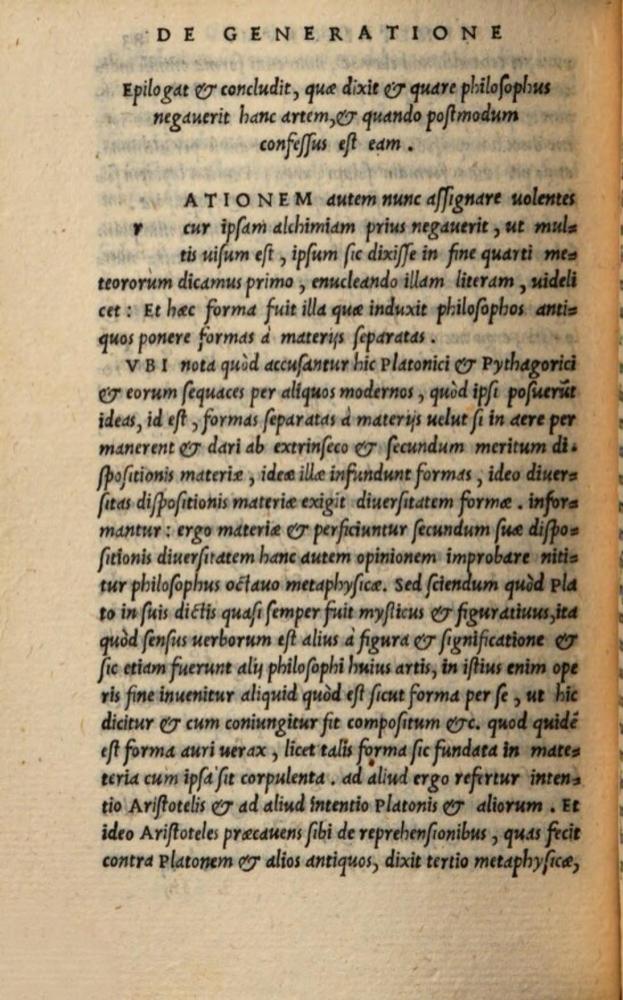 DE GENERATIONE
Epilogat & concludit, quæ dixit & quare philoſophus
negauerit hanc artem,& quando poſtmodum
confeſſus eſt eam .
ATIONEM autem nunc aſſignare uolentes
r cur ipſam alchimiam prius negauerit , ut mul=
tis uiſum eſt , ipſum ſic dixiſſe in fine quarti me=
teororum dicamus primo , enucleando illam literam , uideli
cet : Et hæc forma fuit illa quæ induxit philoſophos anti=
quos ponere formas à materijs ſeparatas .
VBI nota quòd accuſantur hic Platonici & Pythagorici
& eorum ſequaces per aliquos modernos , quòd ipſi poſuerũt
ideas, id eſt , formas ſeparatas à materijs uelut ſi in aere per
manerent & dari ab extrinſeco & ſecundum meritum di=
ſpoſitionis materiæ , ideæ illæ infundunt formas , ideo diuer=
ſitas diſpoſitionis materiæ exigit diuerſitatem formæ . infor=
mantur : ergo materiæ & perficiuntur ſecundum ſuæ diſpo=
ſitionis diuerſitatem hanc autem opinionem improbare niti=
tur philoſophus octauo metaphyſicæ. Sed ſciendum quòd Pla
to in ſuis dictis quaſi ſemper fuit myſticus & figuratiuus,ita
quòd ſenſus uerborum eſt alius à figura & ſignificatione &
ſic etiam fuerunt alij philoſophi huius artis, in iſtius enim ope
ris fine inuenitur aliquid quòd eſt ſicut forma per ſe , ut hic
dicitur & cum coniungitur fit compoſitum &c. quod quidẽ
eſt forma auri uerax , licet talis forma ſic fundata in mate=
teria cum ipſa ſit corpulenta . ad aliud ergo refertur inten=
tio Ariſtotelis & ad aliud intentio Platonis & aliorum . Et
ideo Ariſtoteles præcauens ſibi de reprehenſionibus , quas fecit
contra Platonem & alios antiquos, dixit tertio metaphyſicæ,